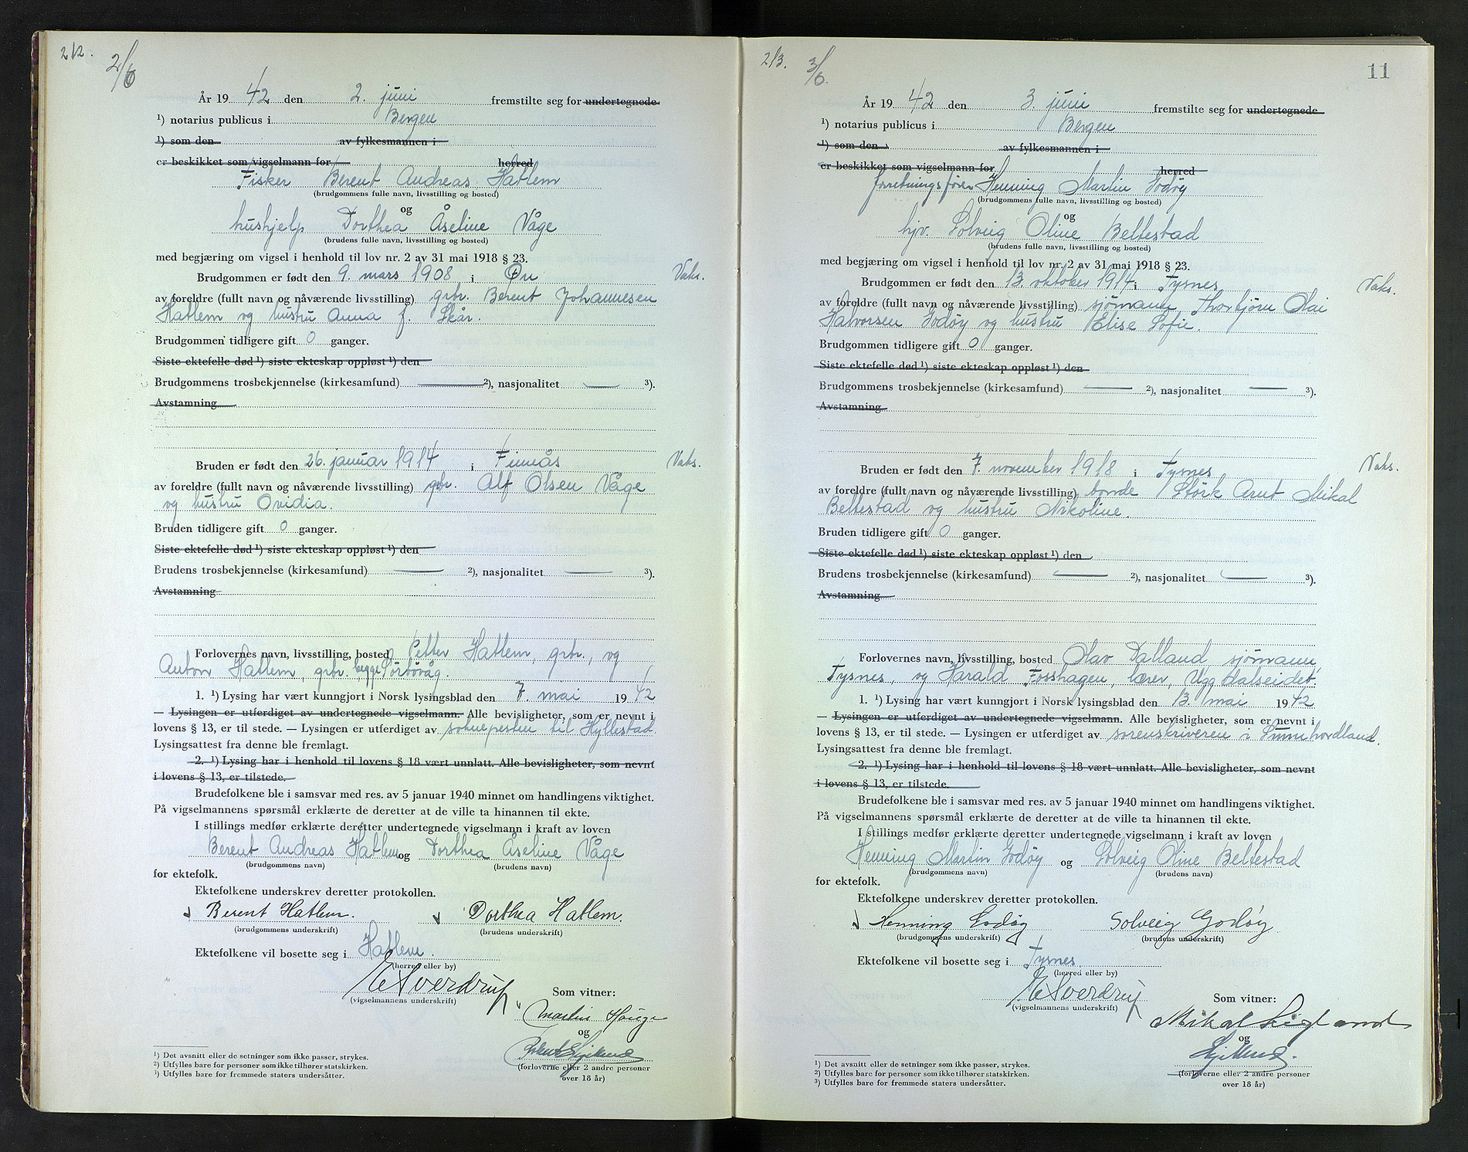 212. 2/6
År 19 42 den 2. juni fremstilte seg for undertegnede
¹) notarius publicus i Bergen
¹) som den av fylkesmannen i
er beskikket som vigselmann for herred
Fisker Berent Andreas Hatlem
(brudgommens fulle navn, livsstilling og bosted)
og
hushjelp Dorthea Åseline Våge
(brudens fulle navn, livsstilling og bosted)
med begjæring om vigsel i henhold til lov nr. 2 av 31 mai 1918 § 23.
Brudgommen er født den 9. mars 1908 i Øn Vaks.
av foreldre (fullt navn og nåværende livsstilling) grbr. Berent Johannesen
Hatlem og hustru Anna f. Skår.
Brudgommen tidligere gift 0 ganger.
Siste ektefelle død ¹) siste ekteskap oppløst ¹) den
Brudgommens trosbekjennelse (kirkesamfund) ²), nasjonalitet ³).
Avstamning
Bruden er født den 26. januar 1914 i Finnås Vaks.
av foreldre (fullt navn og nåværende livsstilling) gbr. Alf Olsen Våge
og hustru Ovidia.
Bruden tidligere gift 0 ganger.
Siste ektefelle død ¹) siste ekteskap oppløst ¹) den
Brudens trosbekjennelse (kirkesamfund) ²), nasjonalitet ³).
Avstamning
Forlovernes navn, livsstilling, bosted Petter Hatlem, grbr., og
Anton Hatlem, grbr. begge Sörbövåg.
1. ¹) Lysing har vært kunngjort i Norsk lysingsblad den 7. mai 19 42
— Lysingen er utferdiget av undertegnede vigselmann. Alle bevisligheter, som er nevnt i
lovens § 13, er til stede. — Lysingen er utferdiget av soknepresten til Hyllestad.
Lysingsattest fra denne ble fremlagt.
2. ¹) Lysing har i henhold til lovens § 18 vært unnlatt. Alle bevisligheter, som nevnt
i lovens § 13, er tilstede.
Brudefolkene ble i samsvar med res. av 5 januar 1940 minnet om handlingens viktighet.
På vigselmannens spørsmål erklærte de deretter at de ville ta hinannen til ekte.
I stillings medfør erklærte deretter undertegnede vigselmann i kraft av loven
Berent Andreas Hatlem og Dorthea Åseline Våge
(brudgommens navn) (brudens navn)
for ektefolk.
Ektefolkene underskrev deretter protokollen.
Berent Hatlem. Dorthea Hatlem.
(brudgommens underskrift) (brudens underskrift)
Ektefolkene vil bosette seg i Hatlem.
(herred eller by)
E Sverdrup
(vigselmannens underskrift)
Som vitner:
Martin Hauge
og
(forloverne eller 2 andre personer
over 18 år)
¹) Det avsnitt eller de setninger som ikke passer, strykes.
²) Utfylles bare for personer som ikke tilhører statskirken.
³) Utfylles bare for fremmede staters undersåtter.
213. 3/6. 11
År 19 42 den 3. juni fremstilte seg for undertegnede
¹) notarius publicus i Bergen
¹) som den av fylkesmannen i
er beskikket som vigselmann for herred
forretningsfører Henning Martin Godøy
(brudgommens fulle navn, livsstilling og bosted)
og
hjv. Solveig Oline Bellestad
(brudens fulle navn, livsstilling og bosted)
med begjæring om vigsel i henhold til lov nr. 2 av 31 mai 1918 § 23.
Brudgommen er født den 13. oktober 1914 i Tysnes Vaks.
av foreldre (fullt navn og nåværende livsstilling) sjömann Thorbjörn Olai
Halvorsen Godøy og hustru Elise Sofie.
Brudgommen tidligere gift 0 ganger.
Siste ektefelle død ¹) siste ekteskap oppløst ¹) den
Brudgommens trosbekjennelse (kirkesamfund) ²), nasjonalitet ³).
Avstamning
Bruden er født den 7. november 1918 i Tysnes Vaks.
av foreldre (fullt navn og nåværende livsstilling) bonde Störk Arnt Mikal
Bellestad og hustru Nikoline.
Bruden tidligere gift 0 ganger.
Siste ektefelle død ¹) siste ekteskap oppløst ¹) den
Brudens trosbekjennelse (kirkesamfund) ²), nasjonalitet ³).
Avstamning
Forlovernes navn, livsstilling, bosted Olav Dalland, sjömann,
Tysnes, og Harald Fosshagen, lærer, Uggdalseidet.
1. ¹) Lysing har vært kunngjort i Norsk lysingsblad den 13. mai 19 42
— Lysingen er utferdiget av undertegnede vigselmann. Alle bevisligheter, som er nevnt i
lovens § 13, er til stede. — Lysingen er utferdiget av sorenskriveren i Sunnhordland.
Lysingsattest fra denne ble fremlagt.
2. ¹) Lysing har i henhold til lovens § 18 vært unnlatt. Alle bevisligheter, som nevnt
i lovens § 13, er tilstede.
Brudefolkene ble i samsvar med res. av 5 januar 1940 minnet om handlingens viktighet.
På vigselmannens spørsmål erklærte de deretter at de ville ta hinannen til ekte.
I stillings medfør erklærte deretter undertegnede vigselmann i kraft av loven
Henning Martin Godøy og Solveig Oline Bellestad
(brudgommens navn) (brudens navn)
for ektefolk.
Ektefolkene underskrev deretter protokollen.
Henning Godøy Solveig Godøy
(brudgommens underskrift) (brudens underskrift)
Ektefolkene vil bosette seg i Tysnes
(herred eller by)
E Sverdrup
(vigselmannens underskrift)
Som vitner:
Mikal
og
(forloverne eller 2 andre personer
over 18 år)
¹) Det avsnitt eller de setninger som ikke passer, strykes.
²) Utfylles bare for personer som ikke tilhører statskirken.
³) Utfylles bare for fremmede staters undersåtter.